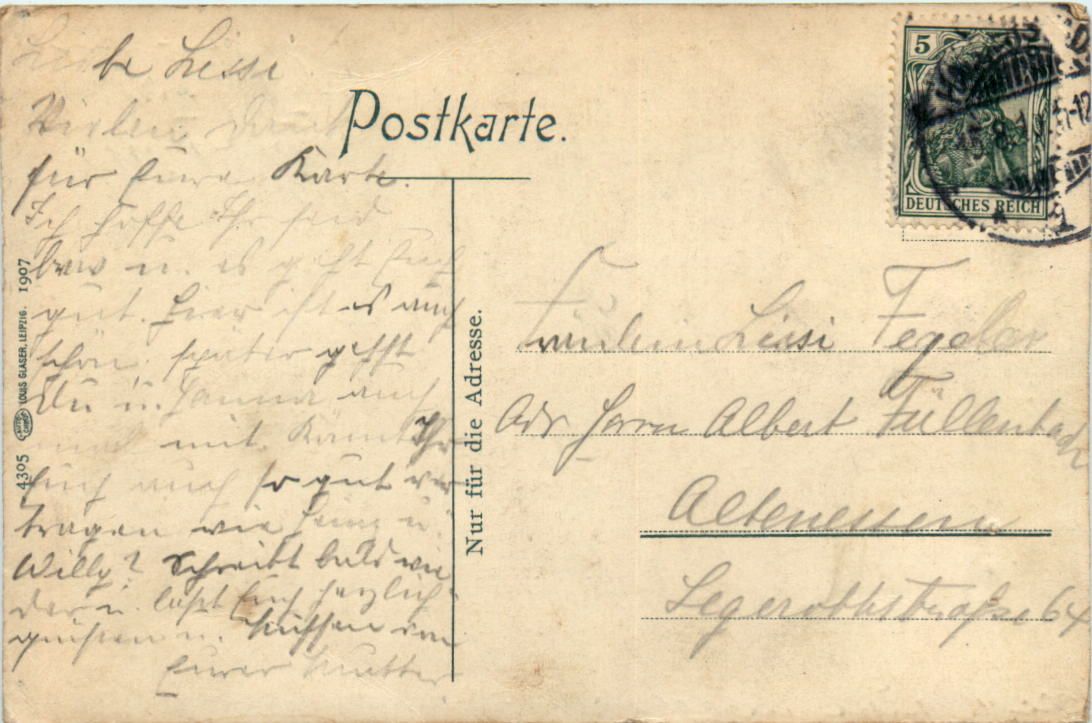 Liebe Lissi
Vielen Dank
für Eure Karte.
Ich hoffe Ihr seid
brav u. es geht Euch
gut. Hier ist es auch
schön. später geht
Du u. Hanna auch
mal mit. Könnt Ihr
Euch auch so gut ver
tragen wie Heinz u.
Willy? Schreibt bald wie
der u. laßt Euch herzlich
grüßen u. küssen von
Eurer Mutter
Postkarte.
5
DEUTSCHES REICH
Fräulein Lissi
Adr Herrn Albert Füllenbach
Altenessen
Segerothstraße 64
Nur für die Adresse.
4305 LOUIS GLASER, LEIPZIG. 1907